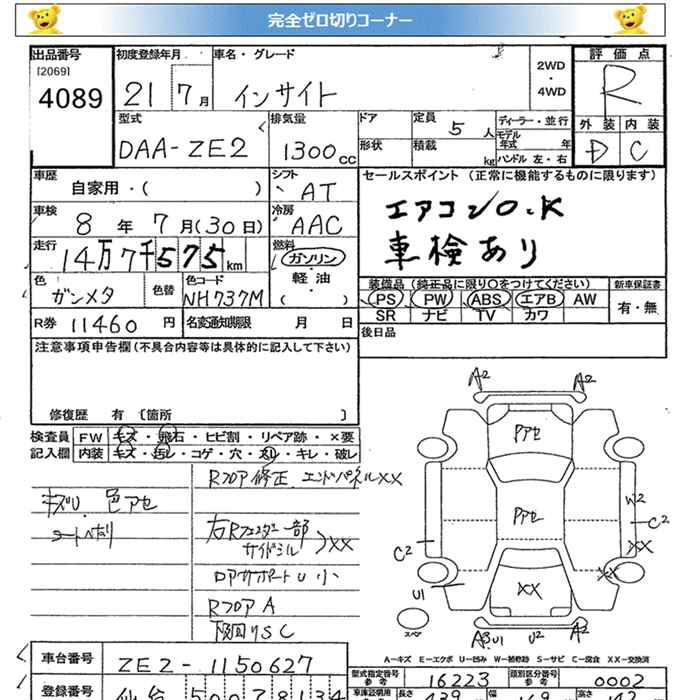 完全ゼロ切りコーナー
出品番号
[2069]
4089
初度登録年月
21 7月
車名・グレード
インサイト
2WD
・
4WD
評価点
R
外装 内装
D C
型式
DAA-ZE2
排気量
1300cc
ドア
形状
定員
5人
積載
kg
ディーラー・並行
モデル
年式 年
ハンドル 左・右
車歴
自家用・( )
シフト
AT
車検
8年7月(30日)
冷房
AAC
走行
14万7千575km
燃料
ガソリン
・
軽油
( )
色
ガンメタ
色替
色コード
NH737M
R券 11460円
名変通知期限 月 日
セールスポイント (正常に機能するものに限ります)
エアコンO.K
車検あり
装備品 (純正品に限り○をつけてください)
新車保証書
PS PW ABS エアB AW
SR ナビ TV カワ
有・無
後日品
注意事項申告欄(不具合内容等は具体的に記入して下さい)
修復歴 有 〔箇所 〕
検査員
記入欄
FW キズ・飛石・ヒビ割・リペア跡・×要
内装 キズ・汚レ・コゲ・穴・スレ・キレ・破レ
キズU 色アセ
Rフロア修正 エンドパネルXX
右Rフェンダー一部
サイドシル
XX
ロアサポートU小
RフロアA
下回りSC
A2 A2
Pアセ
Pアセ
W2
C2
XX
C2
U1
XX
XX
スペア
U2 A2
A-キズ E-エクボ U-凹み W-補修跡 S-サビ C-腐食 XX-交換済
車台番号
ZE2-1150627
型式指定番号
参考
16223
類別区分番号
参考
0002
登録番号
仙台 500
長さ
439
幅
169
高さ